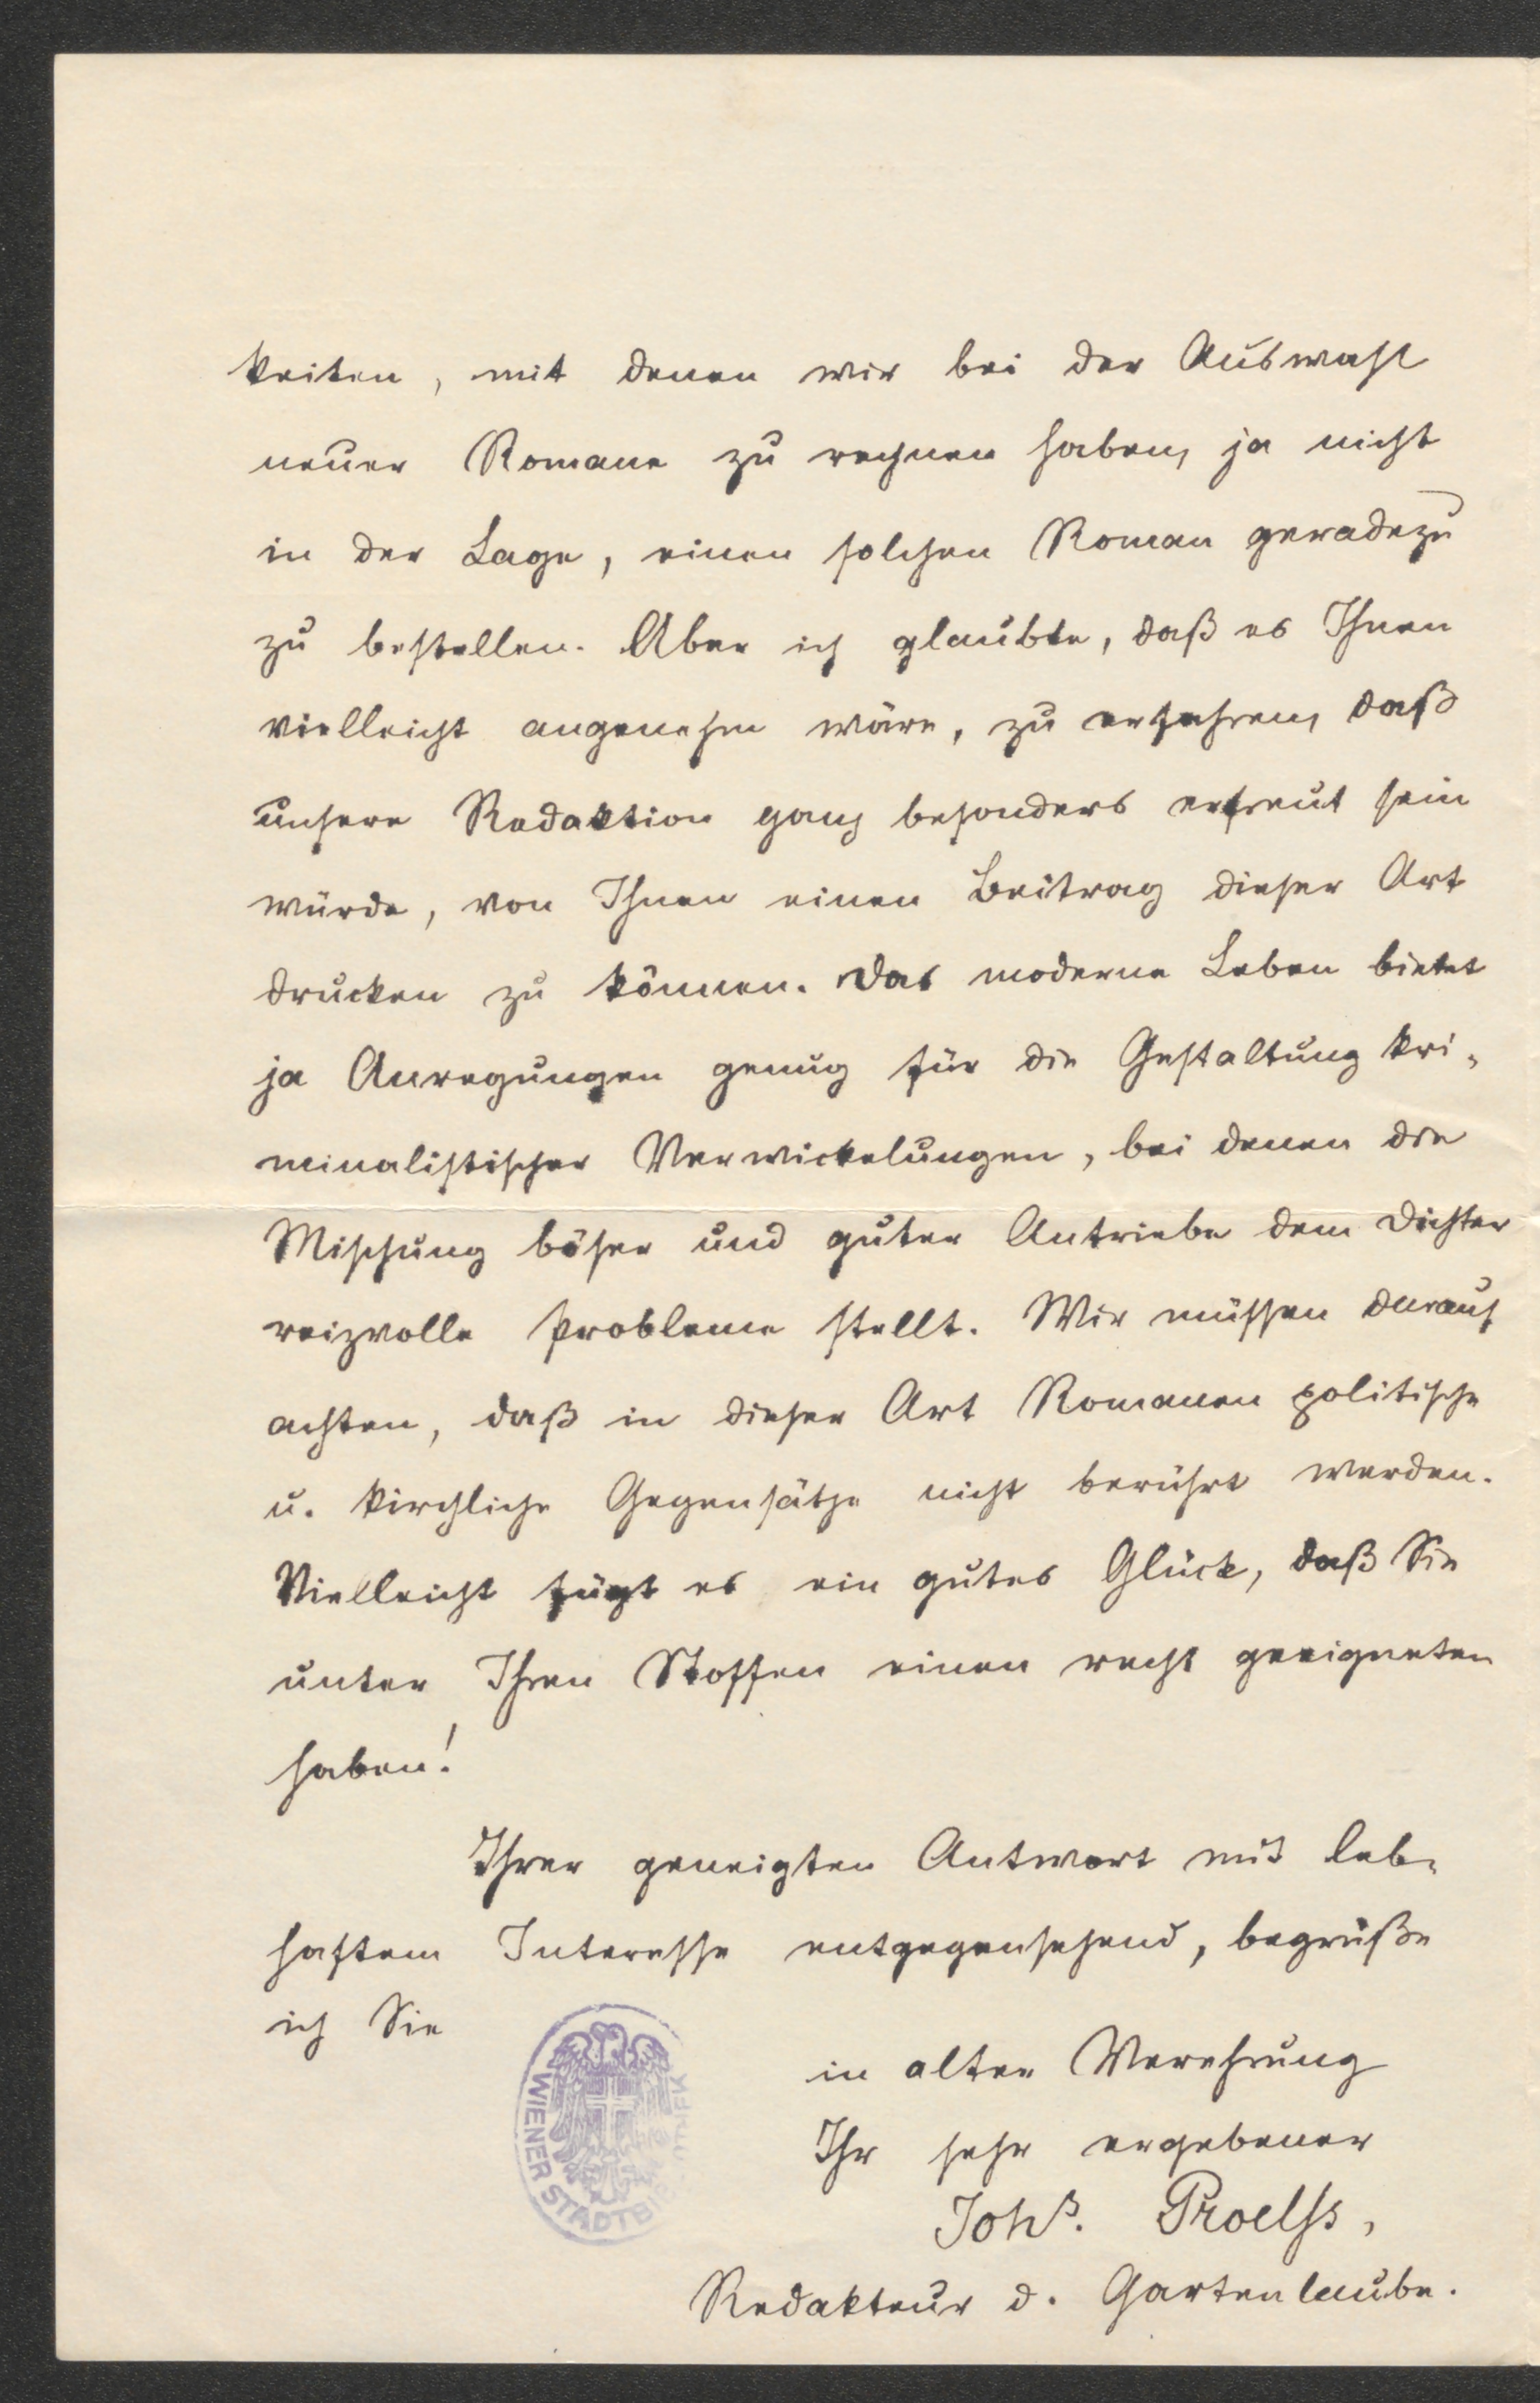 keiten, mit denen wir bei der Auswahl
neuer Romane zu rechnen haben, ja nicht
in der Lage, einen solchen Roman geradezu
zu bestellen. Aber ich glaubte, daß es Ihnen
vielleicht angenehm wäre, zu erfahren, daß
unsere Redaktion ganz besonders erfreut sein
würde, von Ihnen einen Beitrag dieser Art
drucken zu können. Das moderne Leben bietet
ja Anregungen genug für die Gestaltung kri-
minalistischer Verwickelungen, bei denen die
Mischung böser und guter Antriebe dem Dichter
reizvolle Probleme stellt. Wir müssen darauf
achten, daß in dieser Art Romanen politische
u. kirchliche Gegensätze nicht berührt werden.
Vielleicht fügt es ein gutes Glück, daß Sie
unter Ihren Stoffen einen recht geeigneten
haben!
Ihrer geneigten Antwort mit leb-
haftem Interesse entgegensehend, begrüße
ich Sie
in alter Verehrung
Ihr sehr ergebener
Johs. Proelss,
Redakteur d. Gartenlaube.
WIENER STADTBIBLIOTHEK